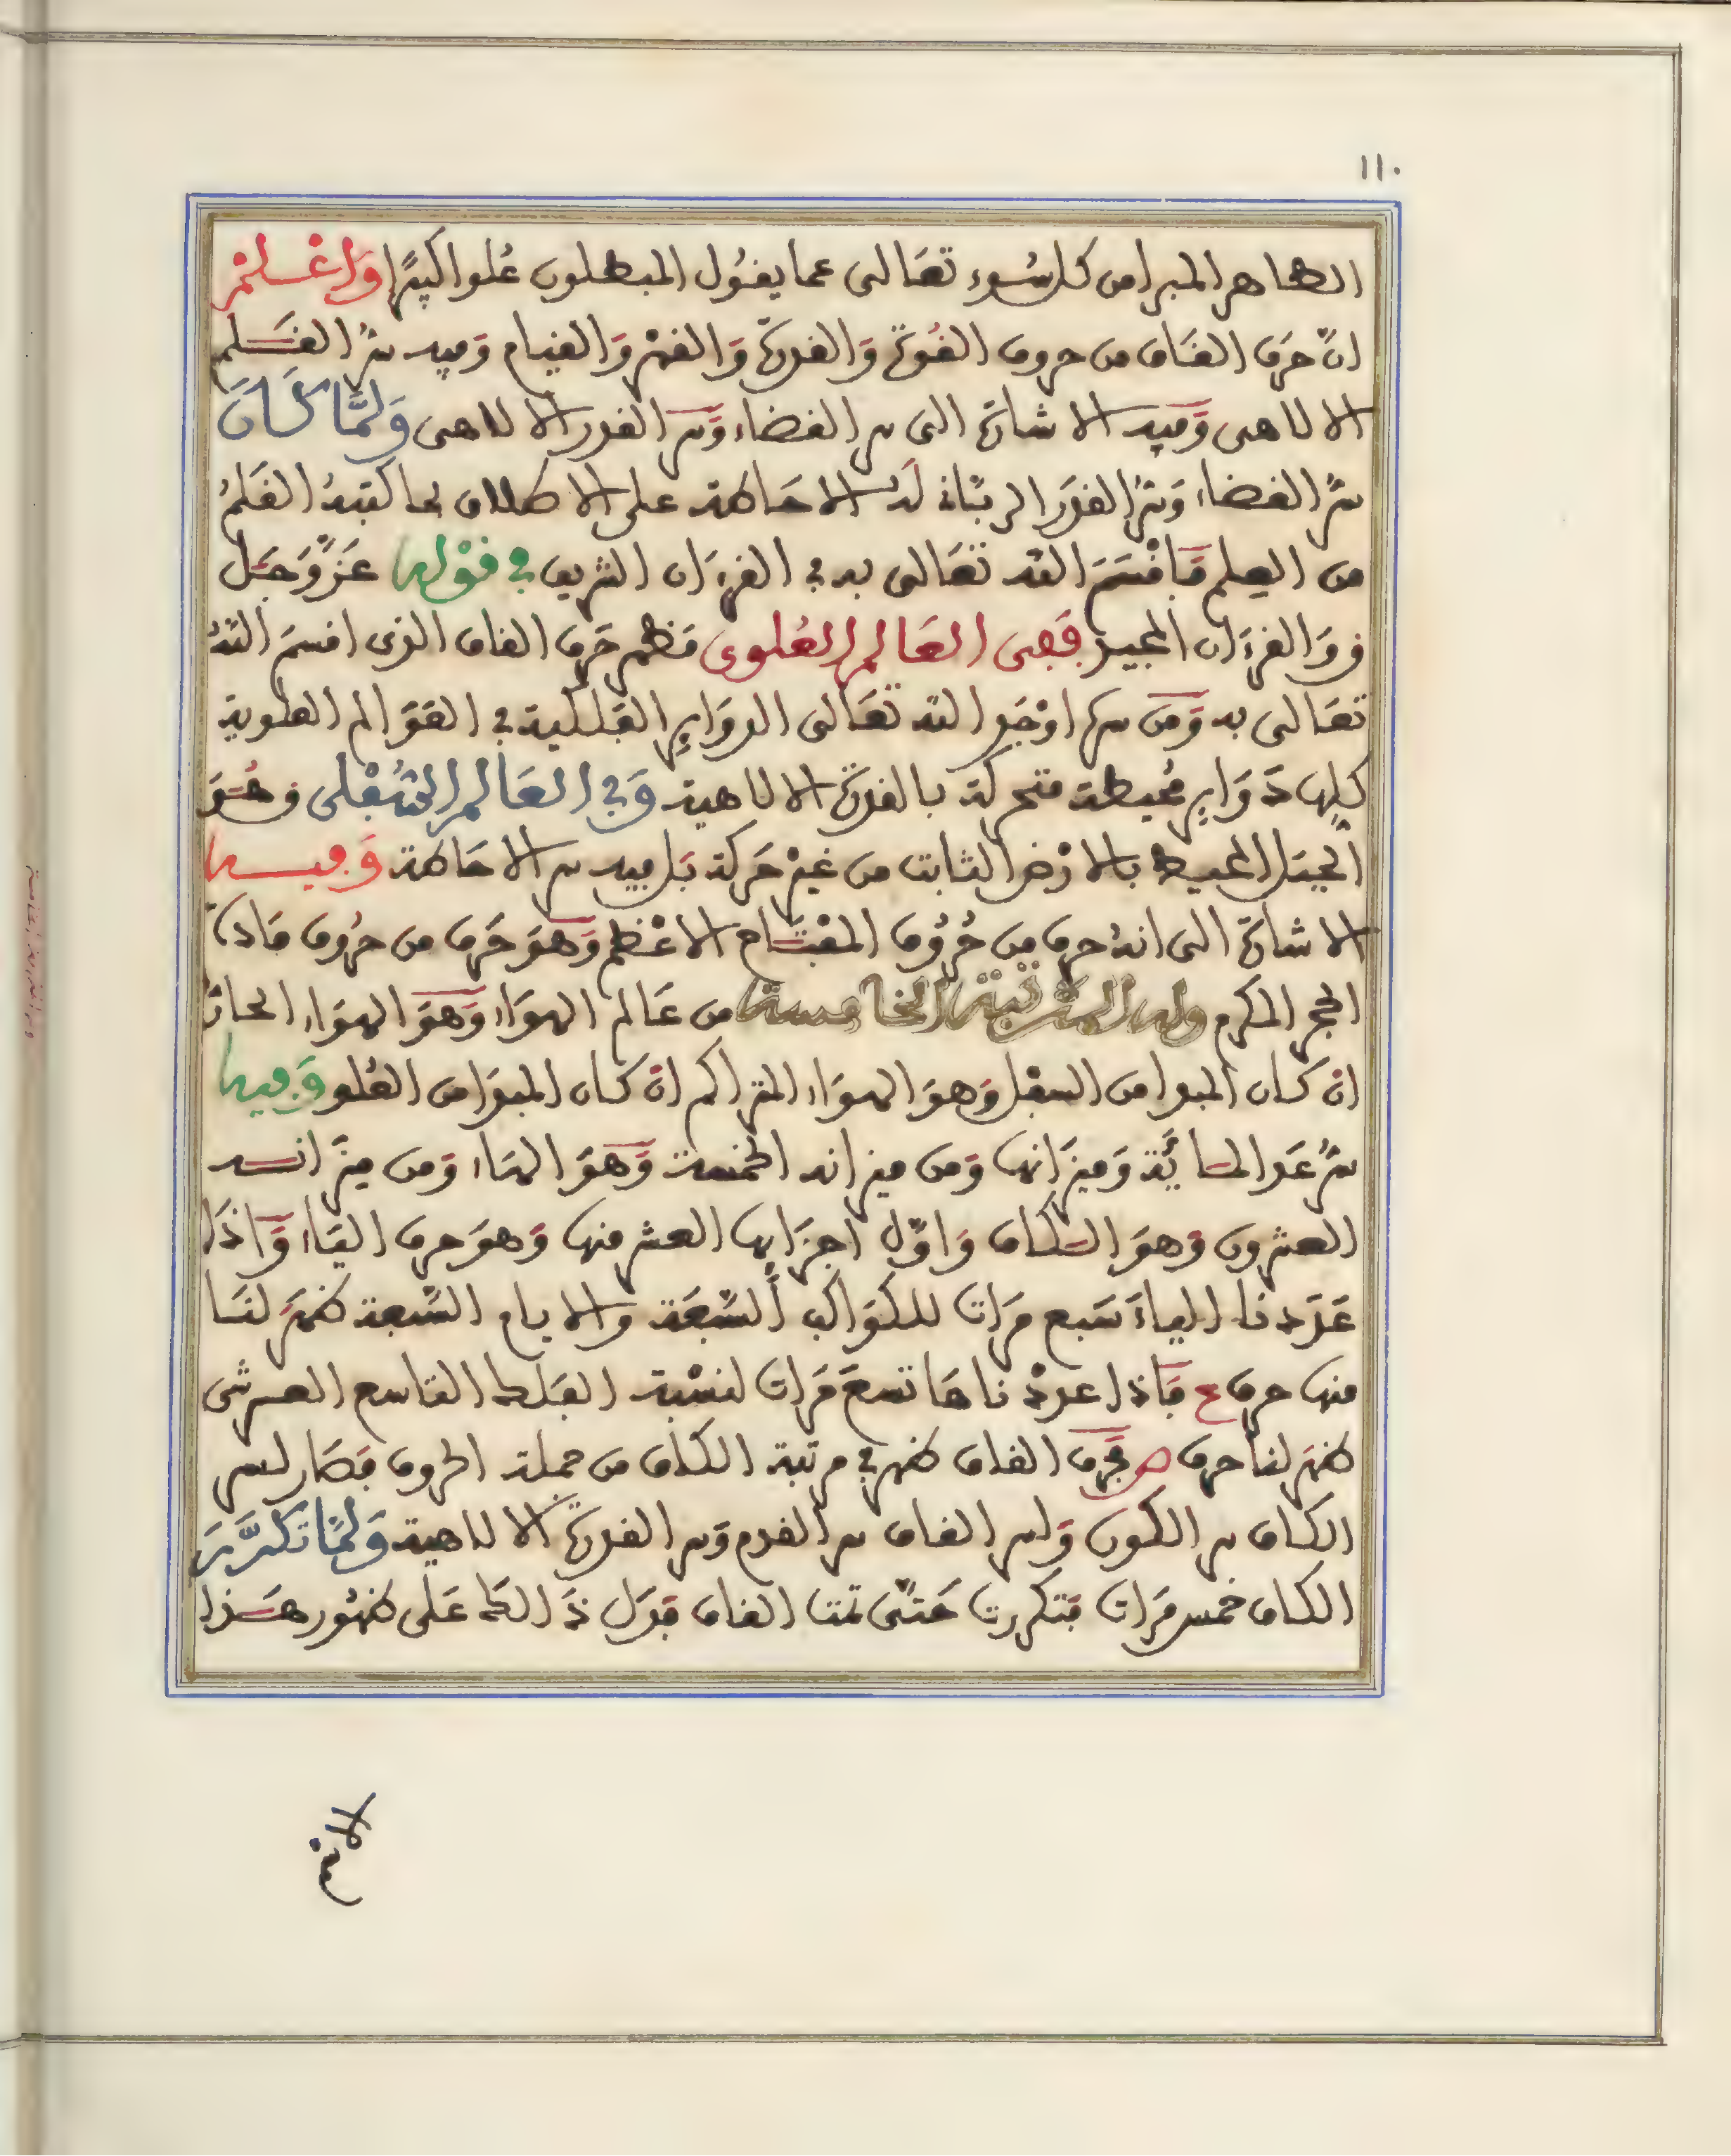 ١١٠
الطاهر المبرا من كل سُوء تعَالى عما يقُول المبطلون عُلوا كبيرًا وَاعْلمْ
انّ حَرف القَاف من حروف القُوّة وَالقدرة وَالقهْر وَالقيام وَفيه سرُّ القَلم
الالاهى وَفيه الاشارة الى سر القضاء وَسر القدر الالاهى وَلمَّا كَانَ
سرّ القضاء وَسرّ القدَر الربَّانى لهُ الاحَاطة على الاطلاق بما كتبهُ القَلمُ
من العِلم فَاقْسَمَ الله تعَالى به في القرءَان الشريف في قوْله عَزَّوَجَل
ق وَالقرءَان المجيد ففى العَالم العُلوى فظهر حَرف القاف الذى اقسمَ اللهُ
تعَالى به وَمن سرها اوْجَد الله تعَالى الدوَاير الفَلكية في العَوَالم العلوية
كلها دَوَاير مُحيطة متحركة بالقدرة الالاهية وَفي العَالم السُّفْلى ق هُوَ
الجبَل المحيط بالارْض الثابت من غيْر حَركة بَل بيه سر الاحَاطة وَفيهَا
الاشارة الى انهُ حرف من حُرُوف المفْتَاح الاعْظم وَهوَ حَرف من حرُوف مَادة
الحجر المكرم وله المرْتبة الخامسة من عَالم الهوَاء وَهوَ الهوَاء الحارّ
انْ كان المبدا من السفل وَهوَ الهوَاء المتراكم انْ كان المبدَا من العُلو وَفيها
سرُّ عَدد المائَة وَميزَانها وَمن ميزانه الخمسة وَهوَ الهَاء وَمن ميزَانه
العشرون وَهوَ الكاف وَاوّل اجزَايها العشر منها وَهوَ حرف اليَاء وَاذَا
عَدَدنا الياءَ سَبع مَرات للكوَاكب السَّبعَة والايام السَّبعة ظهَرَ لنَا
منها حرف ع فَاذا عددْناهَا تسعَ مَرات لنسْبة الفَلك التاسع العرشى
ظهَر لنا حرف ص فحَرف القاف ظهر في مرتبة الكاف من جملة الحروف فصَار لسر
الكاف سر الكون وَلسر القاف سر القدم وَسر القدرة الالاهية وَلمَّا تكرَّرَ
الكاف خمس مَرات فتكررت حَتَّى تمت القاف فدَل ذَالك عَلى ظهُور هَذا